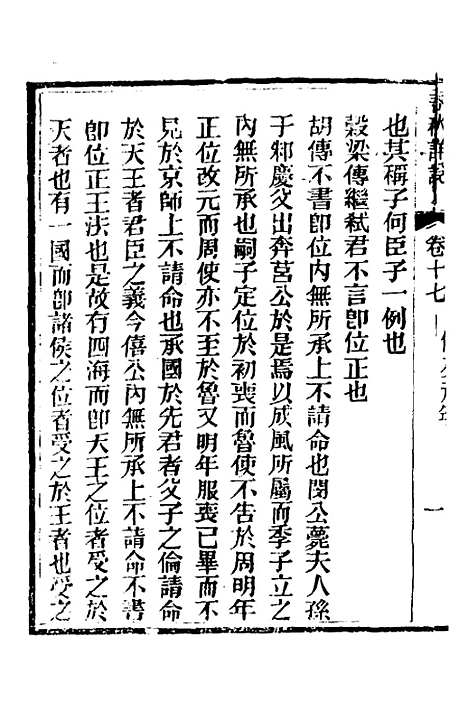 春秋詳說 卷十七 僖公元年 一
也其稱子何臣子一例也
穀梁傳繼弒君不言卽位正也
胡傳不書卽位內無所承上不請命也閔公薨夫人孫
于邾慶父出奔莒公於是焉以成風所屬而季子立之
內無所承也嗣子定位於初喪而魯使不告於周明年
正位改元而周使亦不至於魯又明年服喪已畢而不
見於京師上不請命也承國於先君者父子之倫請命
於天王者君臣之義今僖公內無所承上不請命不書
卽位正王法也是故有四海而卽天王之位者受之於
天者也有一國而卽諸侯之位者受之於王者也受之